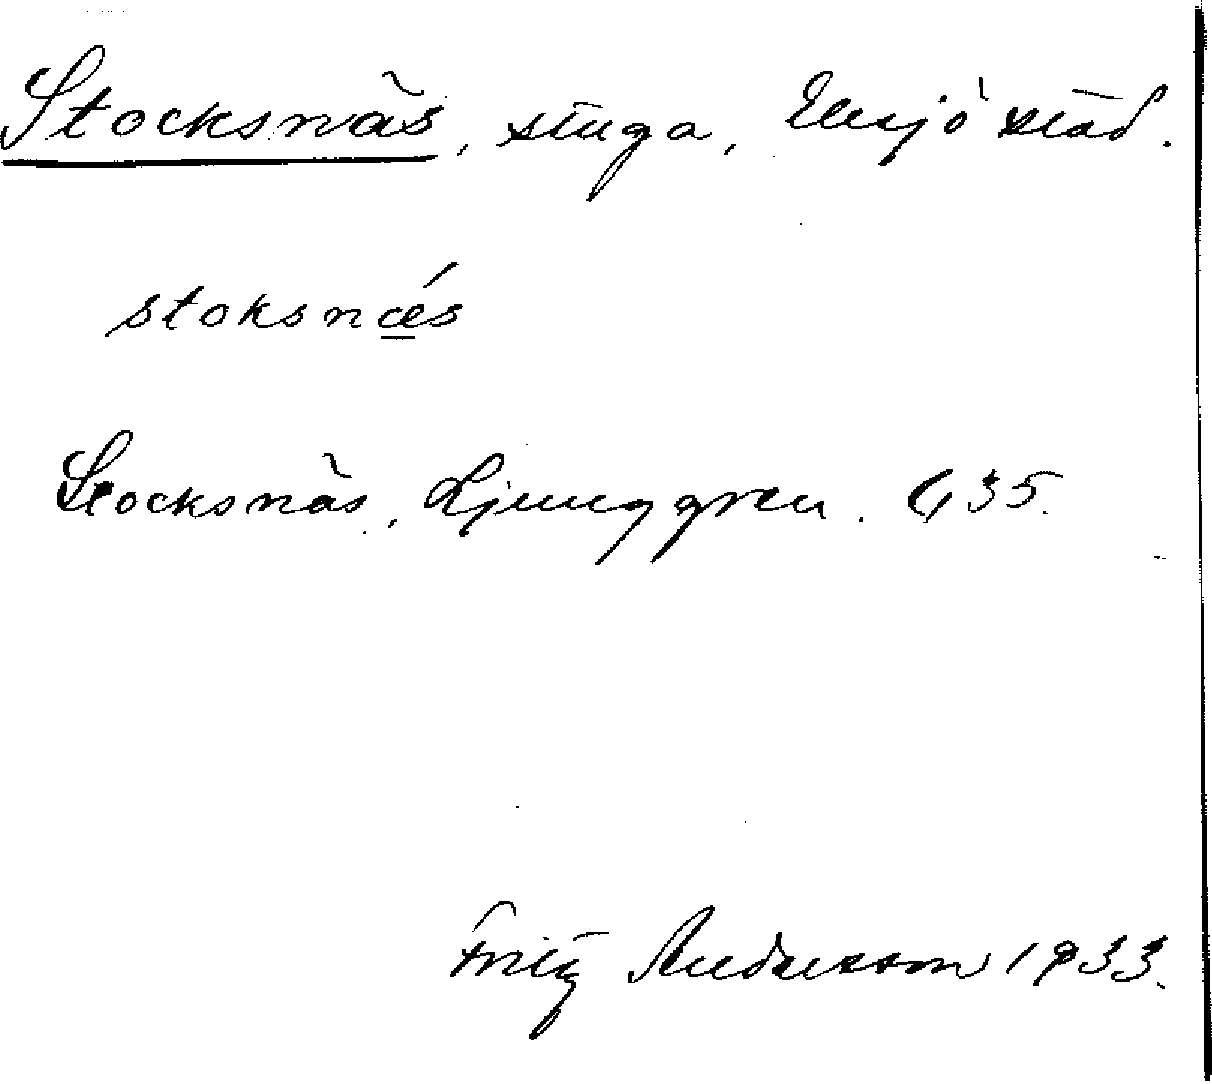 Stocksnäs, stuga, Elsjö stad.
stoksnǽs
Stocksnäs, Ljunggren. 635.
Fritz Andersson 1933.